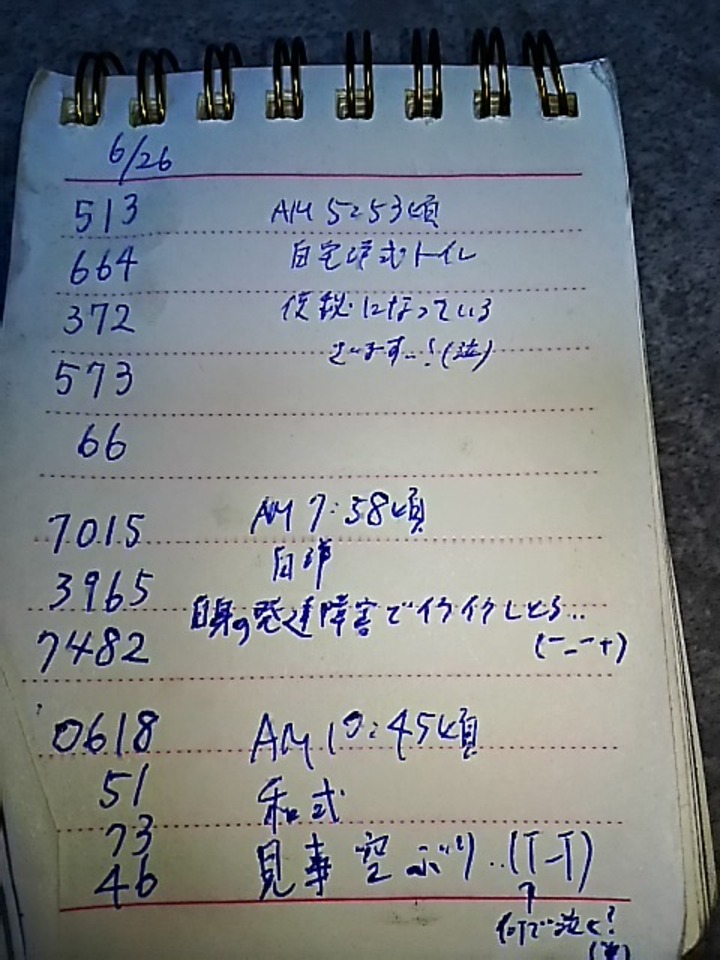 6/26
513 AM 5:53頃
664 自宅洋式トイレ
372 便秘になっている
573 ています…!(泣)
66
7015 AM 7:58頃
3965 自洋
自身の発達障害でイライラしとる…
7482 (ー_ー+)
0618 AM 10:45頃
51 和式
73
46 見事空ぶり…(T-T)
↑
何で泣く?